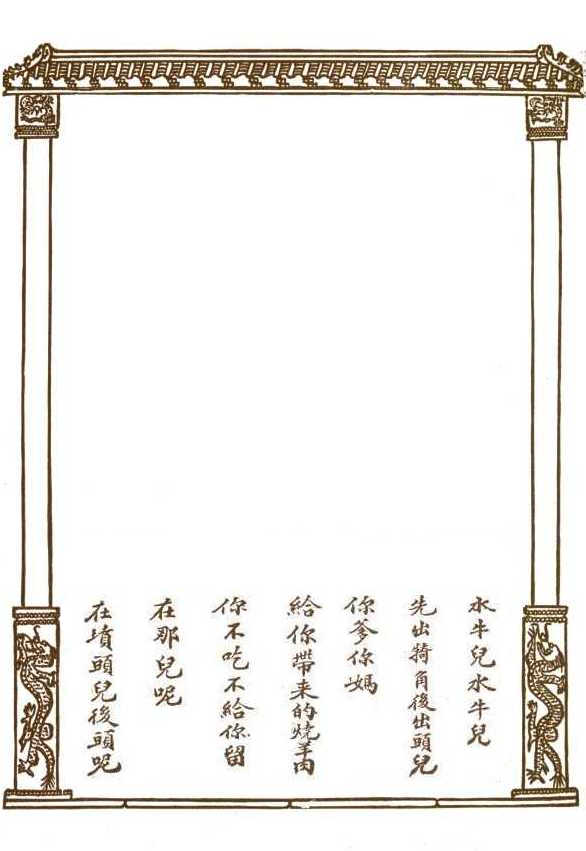 水牛兒水牛兒
先出犄角後出頭兒
你爹你媽
給你帶來的燒羊肉
你不吃不給你留
在那兒呢
在墳頭兒後頭呢